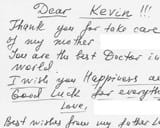 Dear Kevin !!!
Thank you for take care
of my mother
You are the best Doctor in
world
I wish you Happiness an
Good Luck for everythi
Love,
Best wishes from my father